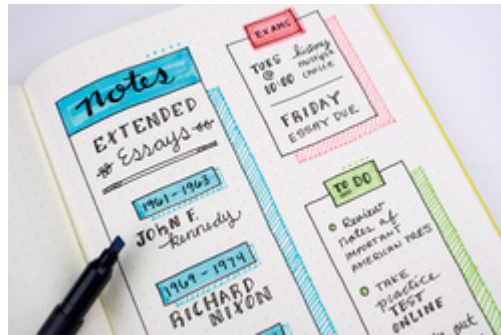 Notes
EXTENDED
Essays
1961-1963
JOHN F.
kennedy
1969-1974
RICHARD
NIXON
EXAMS
TUES history
@ multiple
10:00 choice
FRIDAY
ESSAY DUE
TO DO
Review
notes of
IMPORTANT
AMERICAN PRES
TAKE
practice
TEST
ONLINE
out